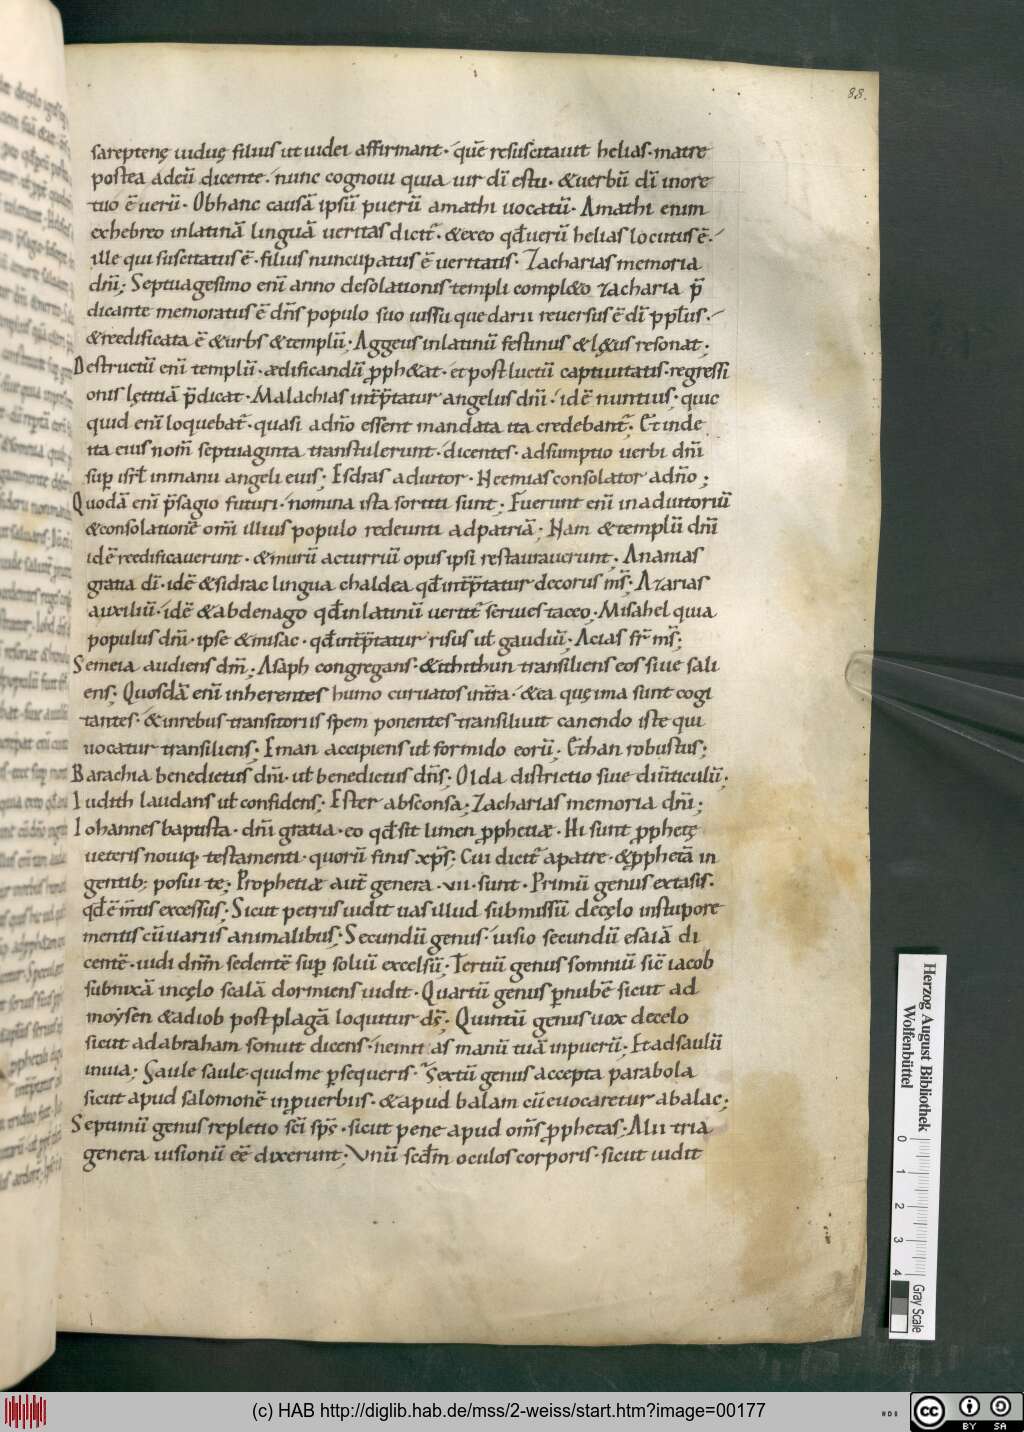 88.
sareptenę uiduę filius ut iudei affirmant · quē resuscitauit helias · matre
postea adeū dicente · nunc cognoui quia uir dī es tu · & uerbū dī in ore
tuo ē uerū · Ob hanc causā ipsū puerū amathi uocatū · Amathi enim
ex hebreo in latinā linguā ueritas dicit᷑ · & ex eo qđ uerū helias locutus ē ·
ille qui suscitatus ē · filius nuncupatus ē ueritatis · Zacharias memoria
dñi; Septuagesimo enī anno desolationis templi compl&o zacharia p̄
dicante memoratus ē dñs populo suo iussuque darii reuersus ē dī pp̄lus ·
& reedificata ē & urbs & templū; Aggeus in latinū festinus & lę&us resonat;
Destructū enī templū · ædificandū p̱ph&at · et post luctū captiuitatis · regressi
onis lętitiā p̄dicat · Malachias int̄p̄tatur angelus dñi · idē nuntius · quic
quid enī loquebat᷑ · quasi a dño essent mandata ita credebant᷑ · Et inde
ita eius nom̄ septuaginta transtulerunt · dicentes · adsumptio uerbi dñi
sup̱ isrł in manu angeli eius; Esdras adiutor · Neemias consolator a dño;
Quodā enī p̄sagio futuri · nomina ista sortiti sunt; Fuerunt enī in adiutoriū
& consolationē om̄i illius populo redeunti ad patriā; Nam & templū dñi
idē reedificauerunt · & murū ac turriū opus ipsi restaurauerunt; Ananias
gratia dī · idē & sidrac lingua chaldea qđ int̄p̄tatur decorus m̄s; Azarias
auxiliū · idē & abdenago qđ in latinū uertit᷑ seruies taceo; Misahel quia
populus dñi · ipse & misac · qđ int̄p̄tatur risus uł gaudiū; Acias fr̄ m̄s;
Semeia audiens dñi; Asaph congregans · & ithithun transiliens eos siue sali
ens; Quosdā enī inherentes humo curuatos in t̄ra · & ea quę ima sunt cogi
tantes · & in rebus transitoriis spem ponentes transiliuit canendo iste qui
uocatur transiliens; Eman accipiens uł formido eorū; Ethan robustus;
Barachia benedictus dñi · uł benedictus dñs; Olda districtio siue diūticulū;
Iudith laudans uł confidens; Ester absconsa; Zacharias memoria dñi;
Iohannes baptista · dñi gratia · eo qđ sit limen p̱phetiæ · Hi sunt p̱phetę
ueteris nouiq· testamenti · quorū finis xp̄s; Cui dicit᷑ a patre · & p̱phetā in
gentib; posui te; Prophetiæ aut̄ genera · vii · sunt · Primū genus extasis ·
qđ ē m̄tis excessus; Sicut petrus uidit uas illud submissū de cęlo in stupore
mentis cū uariis animalibus; Secundū genus · uisio secundū esaiā di
centē · uidi dnm̄ sedentē sup̱ soliū excelsū; Tertiū genus somniū sic̄ iacob
subnixā in cęlo scalā dormiens uidit · Quartū genus p̱ nubē sicut ad
moysen & ad iob post plagā loquitur ds̄; Quintū genus uox de celo
sicut ad abraham sonuit dicens · ne mittas manū tuā in puerū; Et ad saulū
in uia; Saule saule · quid me p̱sequeris · Sextū genus accepta parabola
sicut apud salomonē in p̱uerbiis · & apud balam cū euocaretur a balac;
Septimū genus repletio sc̄i sp̄s · sicut pene apud om̄s p̱phetas; Alii tria
genera uisionū ēē dixerunt; Vnū scđm oculos corporis · sicut uidit
Herzog August Bibliothek
Wolfenbüttel
0 1 2 3 4
Gray Scale
(c) HAB http://diglib.hab.de/mss/2-weiss/start.htm?image=00177
cc BY SA